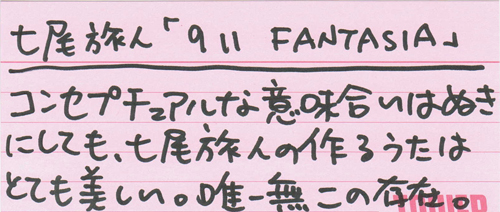 七尾旅人「911 FANTASIA」
コンセプチュアルな意味合いはぬき
にしても、七尾旅人の作るうたは
とても美しい。唯一無二の存在。
TOWER